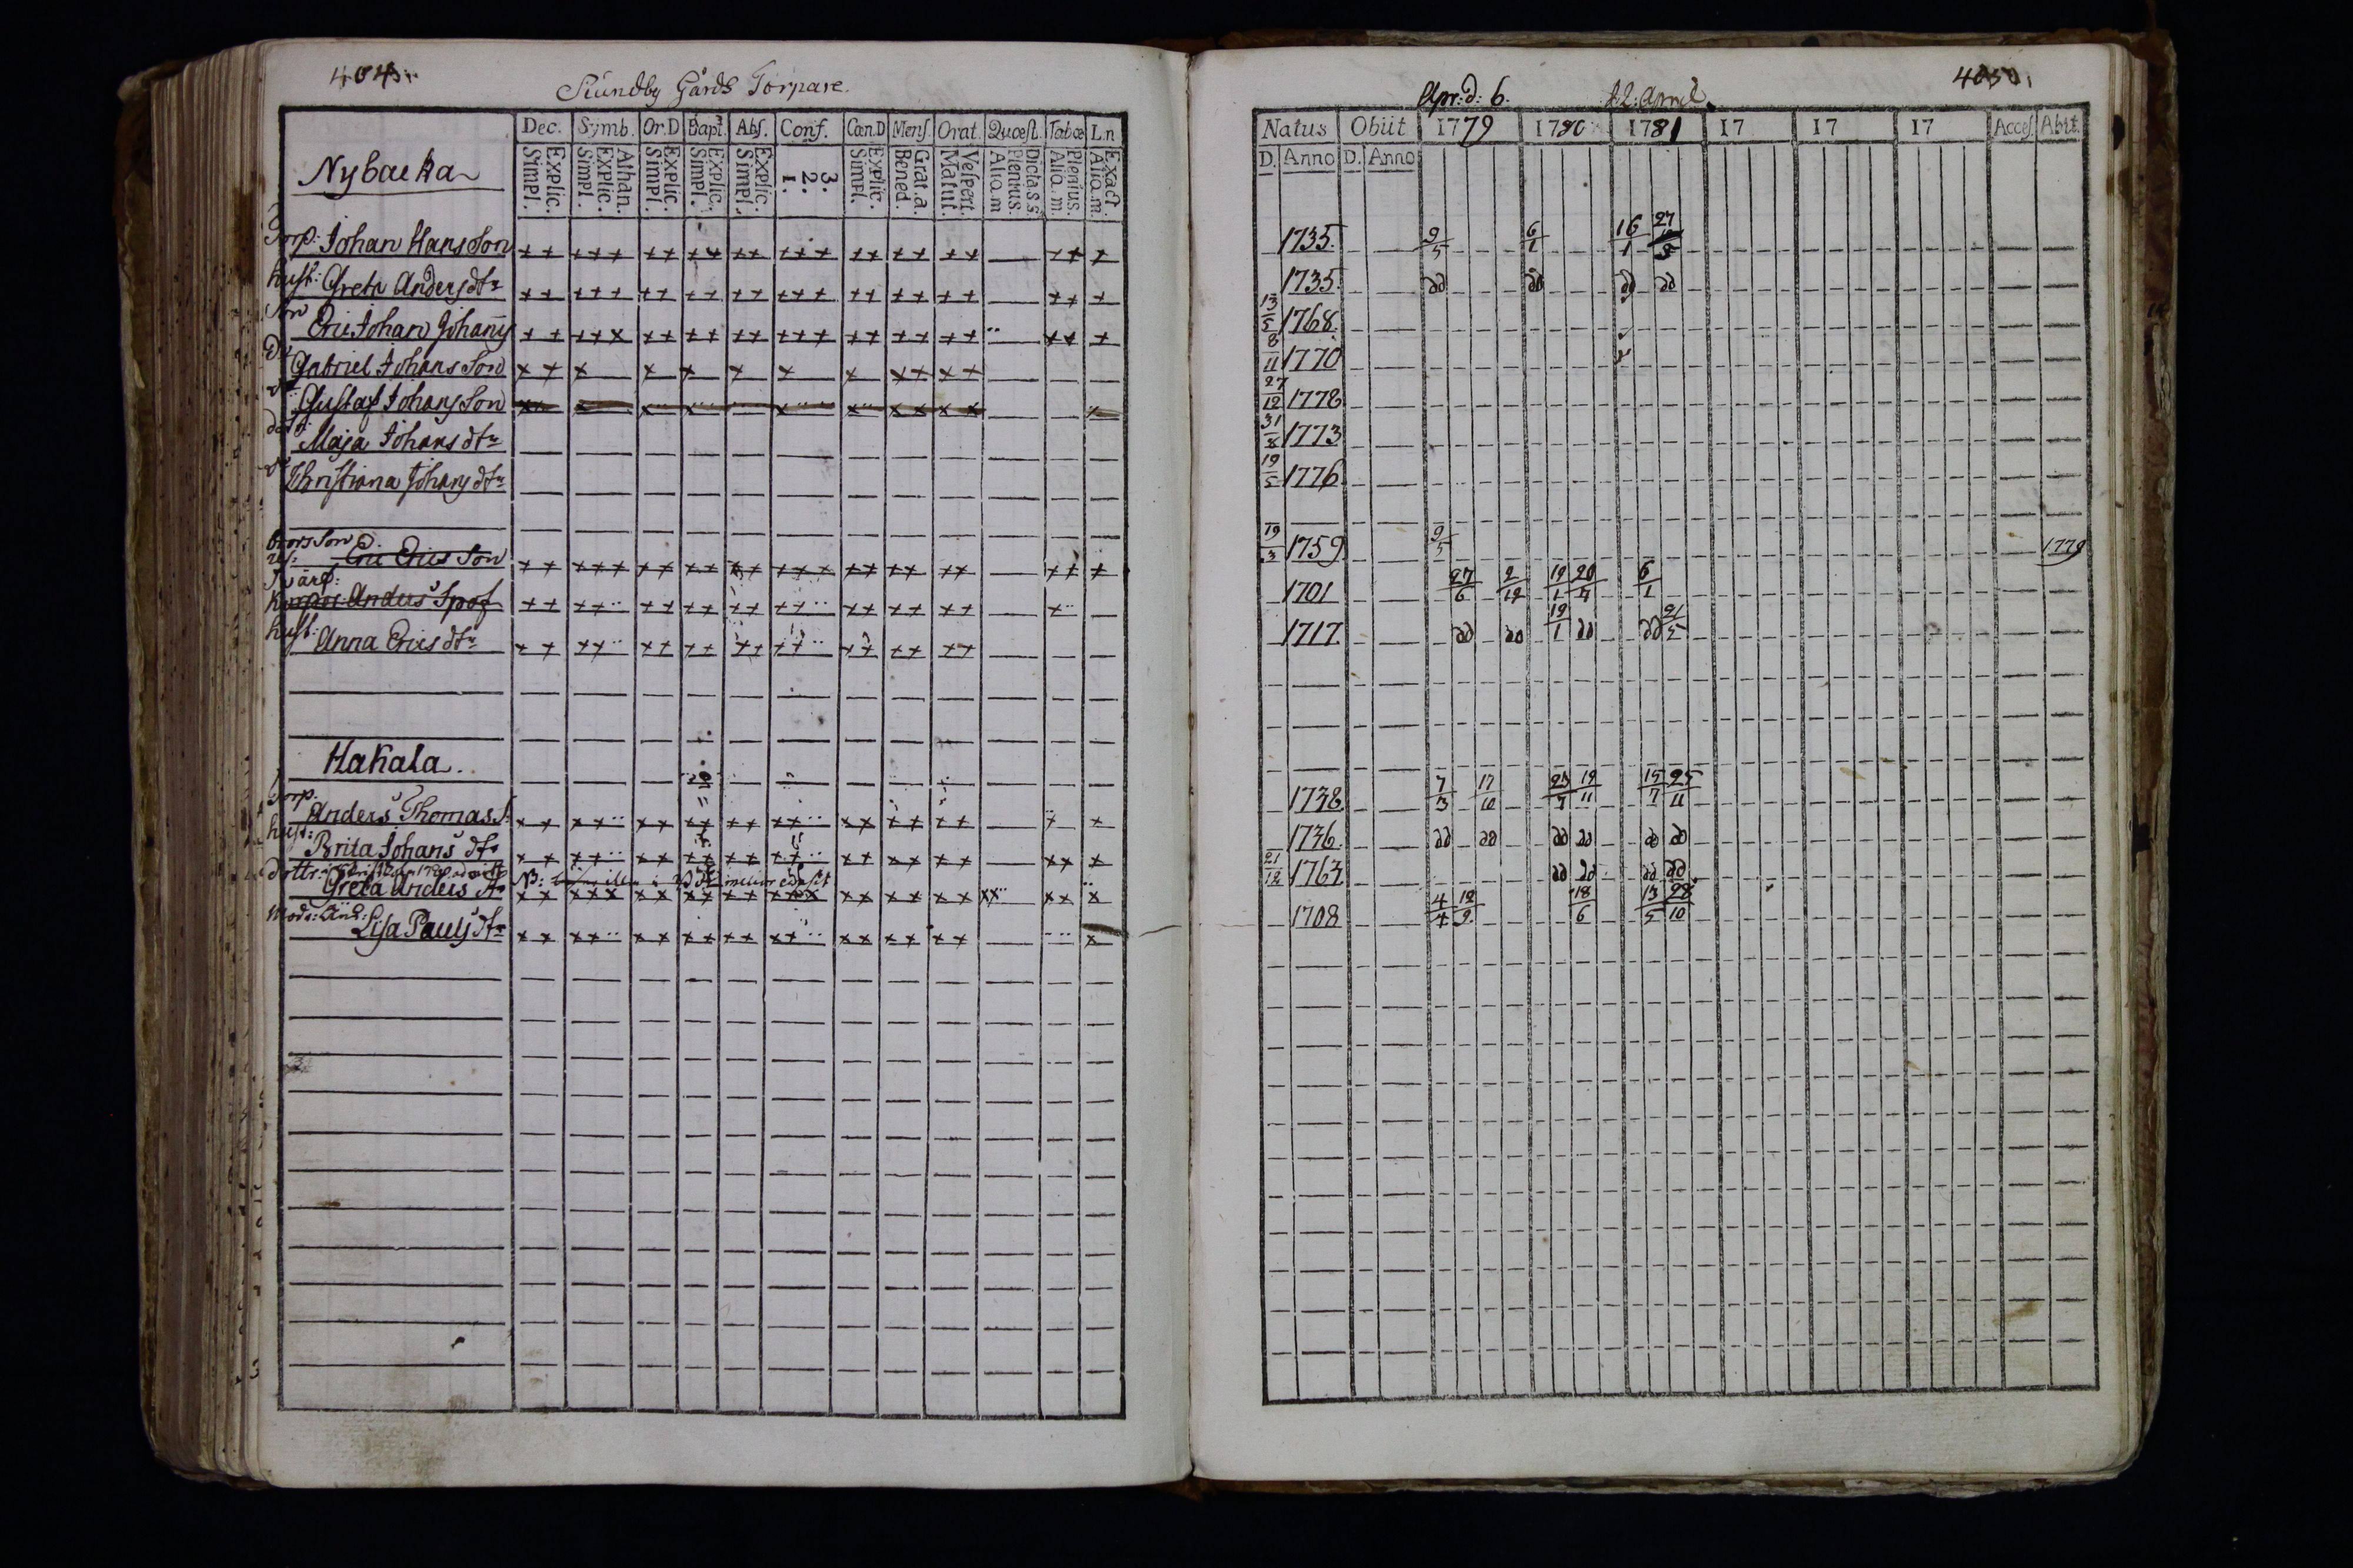 404.
Siundby Gårds Torpare.
Dec. Symb. Or.D Bapt. Abs. Conf. Cœn.D Mens. Orat. Quæst. Tabœ L.n
Explic. Simpl. Athan. Explic. Simpl. Explic. Simpl. Explic. Simpl. Explic. Simpl. 3. 2. 1. Explic. Simpl. Grat.a. Bened. Vespert. Matut. Dicta.s.s Plenius. Aliq.m Plenius. Aliq.m. Exact. Aliq.m.
Nybacka
Torp: Johan Hansson ++ +++ ++ ++ ++ +++ ++ ++ ++ ++ +
hust: Greta Andersdtr ++ +++ ++ ++ ++ +++ ++ ++ ++ ++ +
Son
Eric Johan Johans ++ ++x ++ ++ ++ +++ ++ ++ ++ ++ +
Gabriel Johans Son x+ x x x x x x x+ x+
Gustaf Johans Son
Maja Johans dtr
Christina Johans dtr
brors Son
Eric Erics Son ++ +++ ++ ++ ++ +++ ++ ++ ++ ++ +
Anders Spof ++ ++ ++ ++ ++ ++ ++ ++ ++ +
hust: Anna Erics dtr ++ ++ ++ ++ ++ ++ ++ ++ ++
Hakala.
Torp. Anders Thomas S. ++ ++ ++ ++ ++ ++ ++ ++ ++ + +
hust: Brita Johans dtr ++ ++ ++ ++ ++ ++ ++ ++ ++ ++ +
dottr. NB:
Greta Anders dtr ++ +++ ++ ++ ++ +++ ++ ++ ++ xx ++ x
Mod: Änk: Lisa Pauls dtr ++ ++ ++ ++ ++ ++ ++ ++ ++ x
Apr: d: 6. 12: April.
Natus Obiit 1779 1780 1781 17 17 17 Acces. Abit.
D. Anno D. Anno
1735. 9/5 6/1 16/1 27
1735. do do do do
13/5 1768.
8/11 1770
27/12 1778
31/8 1773
19/5 1776
19/3 1759 9/5 1779
1701 27/6 9/12 19/1 20/4 6/1
1717. do do 19/1 do do 21/5
1738 7/3 17/10 23/7 19/11 15/7 25/11
1736. do do do do do do
21/12 1763 do do do do
1708 4/4 12/9 18/6 13/5 28/10